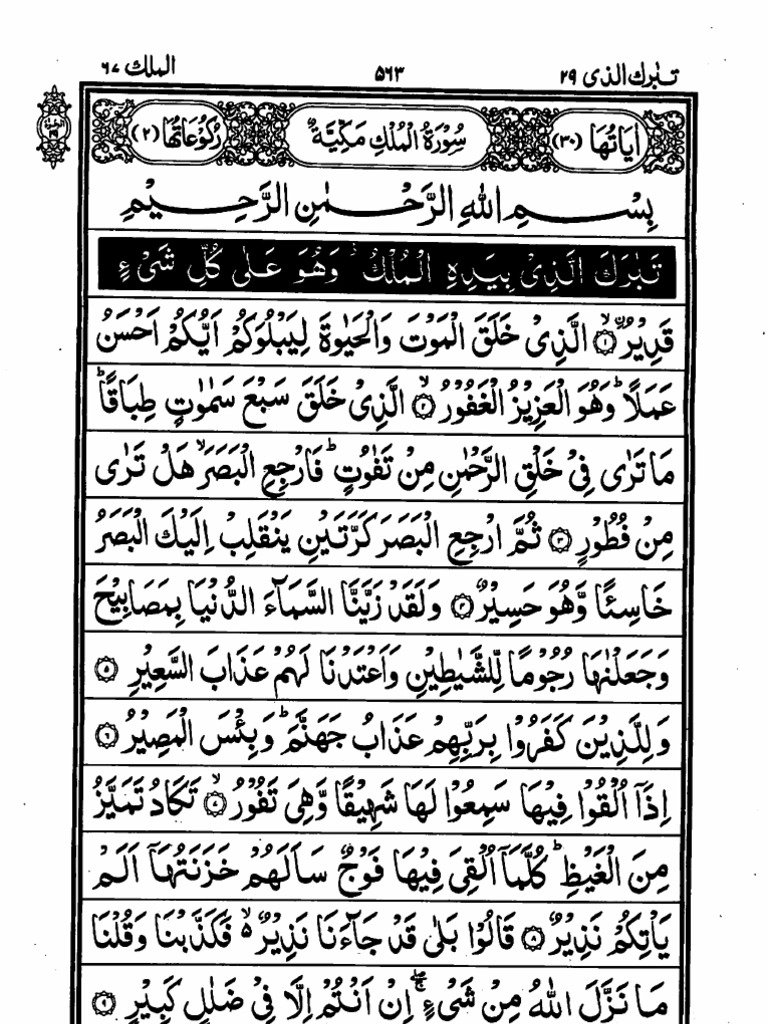 تبٰرك الذی ۲۹ ۵۶۳ الملك ۶۷
اٰیَاتُهَا (۳۰) سُوْرَةُ الْمُلْكِ مَكِّیَّةٌ رُكُوْعَاتُهَا (۲)
بِسْمِ اللهِ الرَّحْمٰنِ الرَّحِیْمِ
تَبٰرَكَ الَّذِیْ بِیَدِهِ الْمُلْكُ ۫ وَهُوَ عَلٰی كُلِّ شَیْءٍ
قَدِیْرُ ۨ ۙ ﴿۱﴾ الَّذِیْ خَلَقَ الْمَوْتَ وَالْحَیٰوةَ لِیَبْلُوَكُمْ اَیُّكُمْ اَحْسَنُ
عَمَلًا ؕ وَهُوَ الْعَزِیْزُ الْغَفُوْرُ ۙ ﴿۲﴾ الَّذِیْ خَلَقَ سَبْعَ سَمٰوٰتٍ طِبَاقًا ؕ
مَا تَرٰی فِیْ خَلْقِ الرَّحْمٰنِ مِنْ تَفٰوُتٍ ؕ فَارْجِعِ الْبَصَرَ ۙ هَلْ تَرٰی
مِنْ فُطُوْرٍ ﴿۳﴾ ثُمَّ ارْجِعِ الْبَصَرَ كَرَّتَیْنِ یَنْقَلِبْ اِلَیْكَ الْبَصَرُ
خَاسِئًا وَّهُوَ حَسِیْرٌ ﴿۴﴾ وَلَقَدْ زَیَّنَّا السَّمَآءَ الدُّنْیَا بِمَصَابِیْحَ
وَجَعَلْنٰهَا رُجُوْمًا لِّلشَّیٰطِیْنِ وَاَعْتَدْنَا لَهُمْ عَذَابَ السَّعِیْرِ ﴿۵﴾
وَلِلَّذِیْنَ كَفَرُوْا بِرَبِّهِمْ عَذَابُ جَهَنَّمَ ؕ وَبِئْسَ الْمَصِیْرُ ﴿۶﴾
اِذَاۤ اُلْقُوْا فِیْهَا سَمِعُوْا لَهَا شَهِیْقًا وَّهِیَ تَفُوْرُ ۙ ﴿۷﴾ تَكَادُ تَمَیَّزُ
مِنَ الْغَیْظِ ؕ كُلَّمَاۤ اُلْقِیَ فِیْهَا فَوْجٌ سَاَلَهُمْ خَزَنَتُهَاۤ اَلَمْ
یَاْتِكُمْ نَذِیْرٌ ﴿۸﴾ قَالُوْا بَلٰی قَدْ جَآءَنَا نَذِیْرٌ ۙ۬ فَكَذَّبْنَا وَقُلْنَا
مَا نَزَّلَ اللهُ مِنْ شَیْءٍ ۚۖ اِنْ اَنْتُمْ اِلَّا فِیْ ضَلٰلٍ كَبِیْرٍ ﴿۹﴾